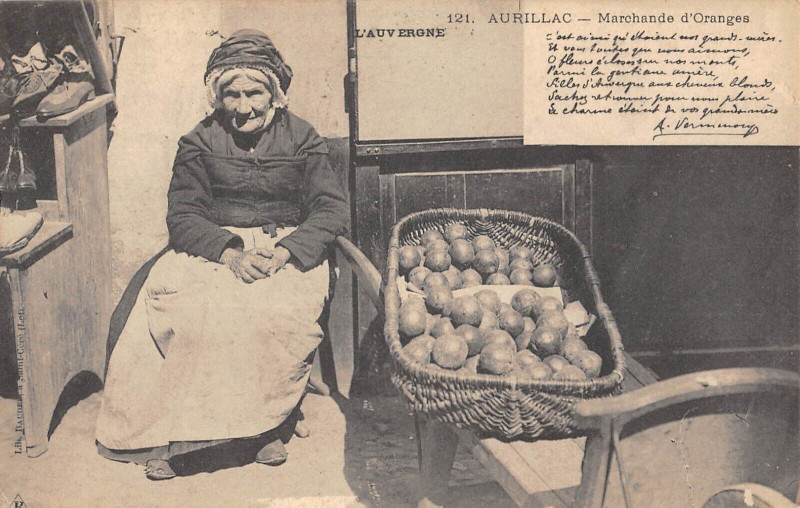 121. AURILLAC — Marchande d'Oranges
L'AUVERGNE
C'est ainsi qu'étaient nos grands-mères.
Et vous toutes que nous aimons,
O fleurs écloses sur nos monts,
Parmi la gentiane amère,
Filles d'Auvergne aux cheveux blonds,
Sachez retrouver pour nous plaire
Le charme étaient de vos grands-mères
A. Vermenouze
Lib. BAUDEL, à Saint-Céré (Lot)